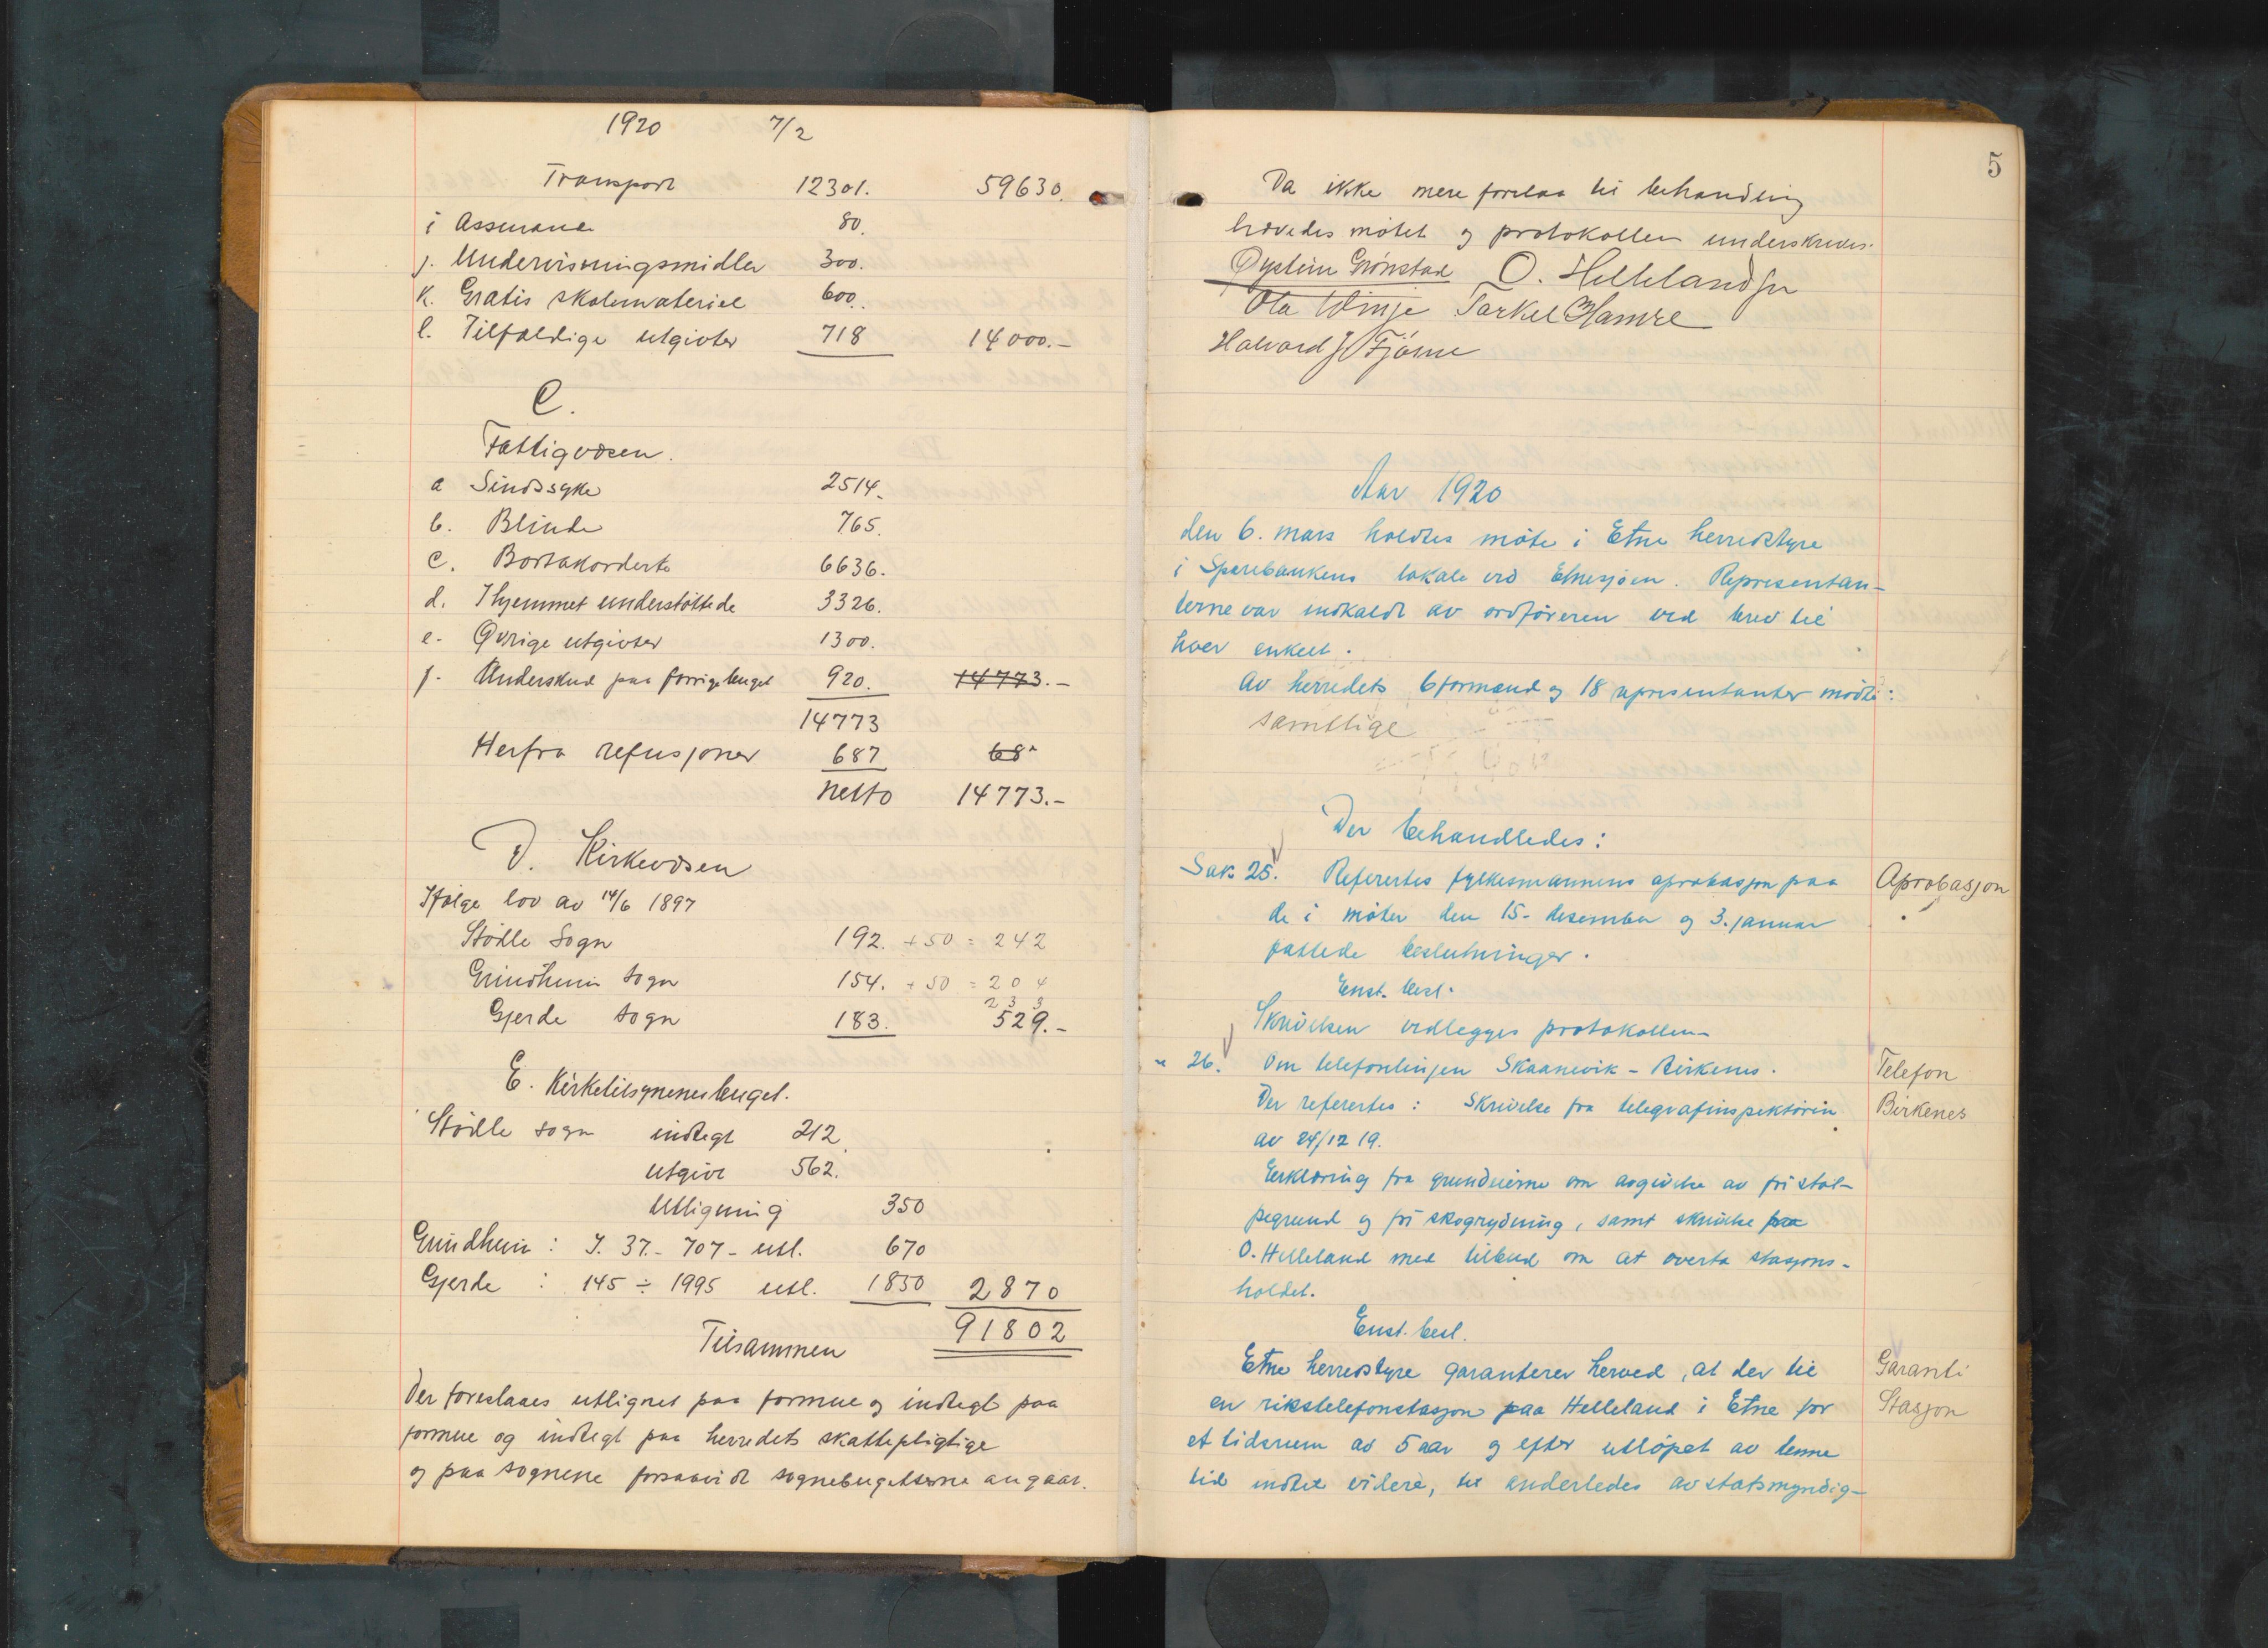 1920 7/2
Transport 12301. 59630.
i Assuranse 80.
j. Undervisningsmidler 300.
k. Gratis skolemateriel 600.
l. Tilfældige utgivter 718 14000.-
C.
Fattigvæsen.
a Sindssyke 2514.
b. Blinde 765.
c. Bortakorderte 6636.
d. I hjemmet understöttede 3326.
e. Øvrige utgivter 1300.
f. Underskud paa forrige buget 920. 14773.-
14773
Herfra refusjoner 687 68
Netto 14773.-
D. Kirkevæsen
Ifølge lov av 14/6 1897
Stödle Sogn 192. + 50 = 242
Grindheim sogn 154. + 50 = 204
233
Gjerde sogn 183. 529.-
E. Kirketilsynenes buget.
Stödle sogn indtegt 212
utgivt 562.
Utligning 350
Grindheim: I. 37.- 707- utl. 670
Gjerde : 145 ÷ 1995 utl. 1850 2870
Tilsammen 91802
Der foreslaaes utlignet paa formue og indtegt paa
formue og indtegt paa herredets skattepligtige
og paa sognene forsaavidt sognebugetterne angaar.
5
Da ikke mere forelaa til behandling
hævedes mötet og protokollen underskreves.
Øystein Grönstad O. Helleland jr
Ola Winje Torkel Hamre
Halvard J. Fjösne
Aar 1920
den 6. mars holdtes möte i Etne herredstyre
i Sparebankens lokale ved Etnesjøen. Representan-
terne var indkaldt av ordföreren ved brev til
hver enkelt.
Av herredets 6 formænd og 18 representanter mödte:
samtlige
Der behandledes:
Sak 25. Referertes fylkesmannens aprobasjon paa Aprobasjon
de i möter den 15. desember og 3. januar
fattede beslutninger.
Enst. besl.
Skrivelsen vedlegges protokollen
" 26. Om telefonlinjen Skaanevik - Birkenes. Telefon
Der referertes: Skrivelse fra telegrafinspektören Birkenes
av 24/12 19.
Erklæring fra grundeierne om avgivelse av fri stol-
pegrund og fri skogrydning, samt skrivelse fra
O. Helleland med tilbud om at overta stasjons-
holdet.
Enst. besl.
Etne herredstyre garanterer herved, at der til Garanti
en rikstelefonstasjon paa Helleland i Etne for Stasjon
et tidsrum av 5 aar og efter utlöpet av denne
tid indtil videre, til anderledes av statsmyndig-